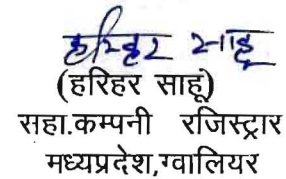 हरिहर साहू
(हरिहर साहू)
सहा.कम्पनी रजिस्ट्रार
मध्यप्रदेश,ग्वालियर